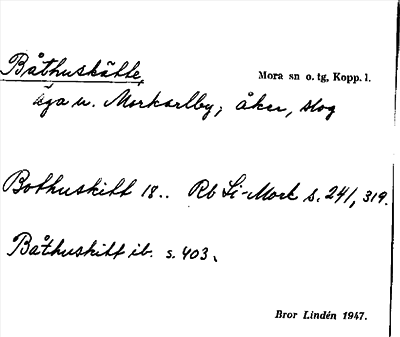 Båthuskätte, Mora sn o. tg, Kopp. l.
äga u. Morkarlby; åker, skog
Bothuskitt 18.. Rb Li-Mork s. 241, 319.
Båthuskitt ib. s. 403.
Bror Lindén 1947.